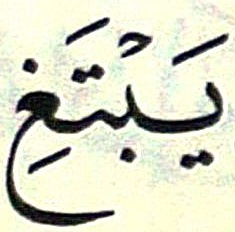 يَبْتَغِ